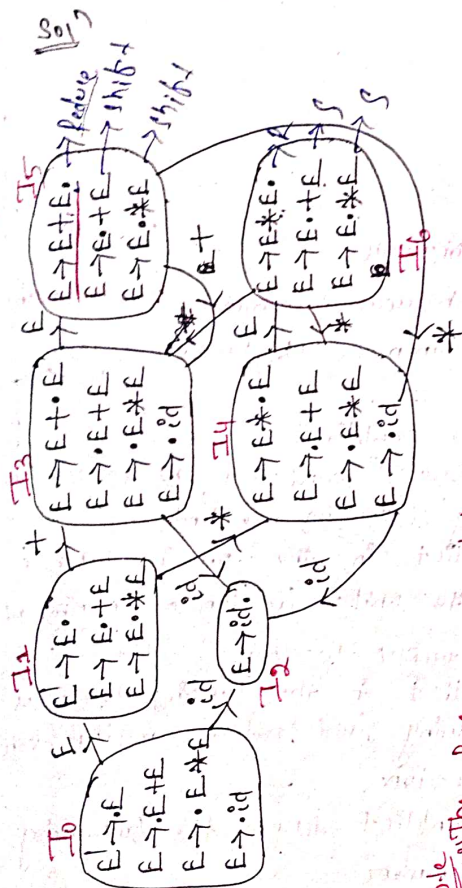 Sol^n
I0
E'→.E
E→.E+E
E→.E*E
E→.id
E
id
I1
E'→E.
E→E.+E
E→E.*E
+
*
I2
E→id.
id
id
I3
E→E+.E
E→.E+E
E→.E*E
E→.id
E
I4
E→E*.E
E→.E+E
E→.E*E
E→.id
E
I5
E→E+E. →Reduce
E→E.+E →Shift
E→E.*E →Shift
+
*
I6
E→E*E. →R
E→E.+E →S
E→E.*E →S
*
*